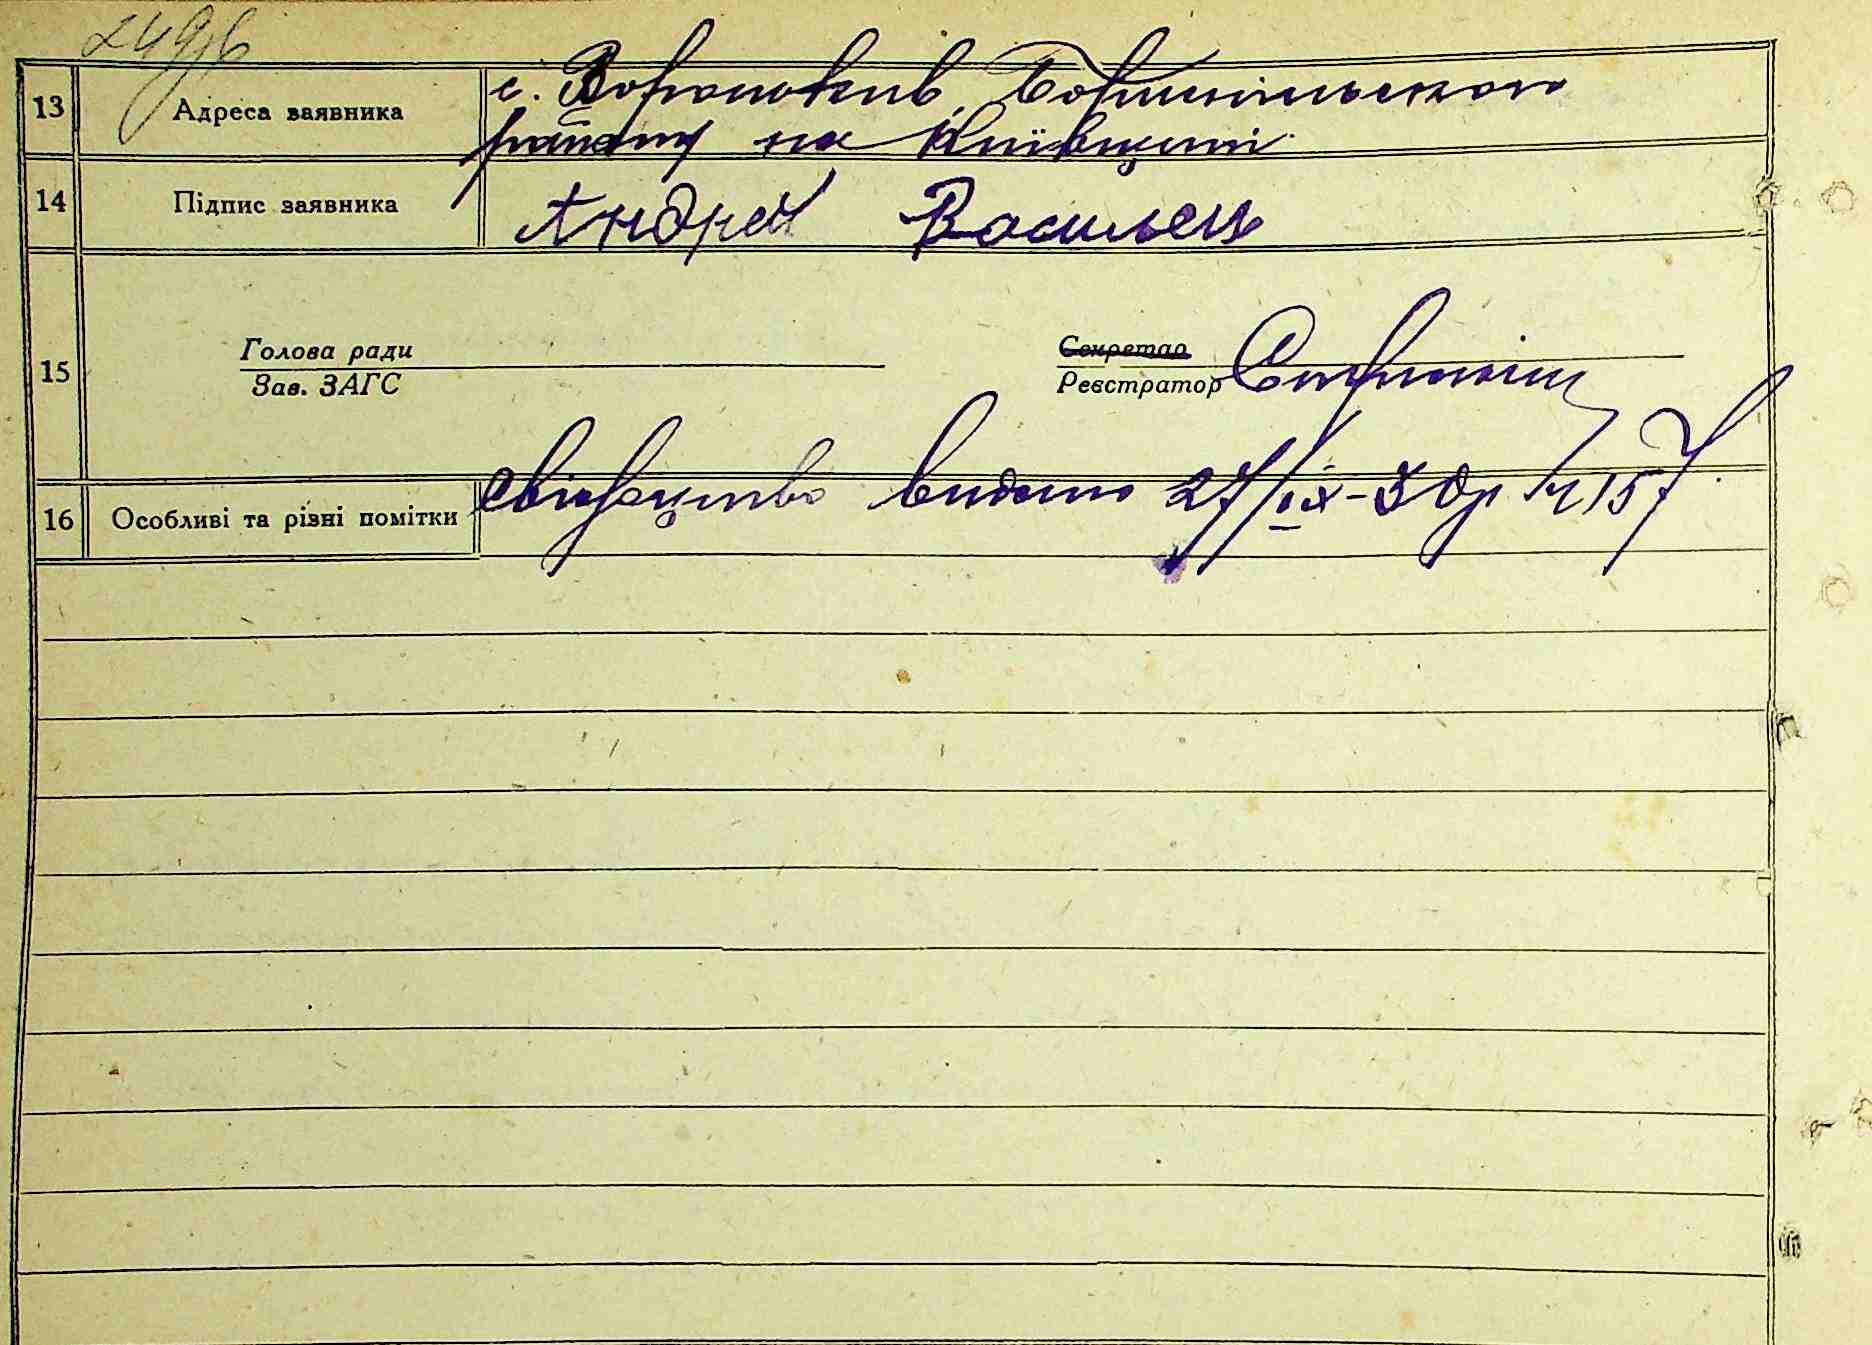 2496
13 Адреса заявника с. Вороньків, Бориспільського
району на Київщині
14 Підпис заявника Андрей Василець
15 Голова ради Секретар
Зав. ЗАГС Реєстратор
16 Особливі та різні помітки свідоцтво видано 27/ІХ-30р № 157